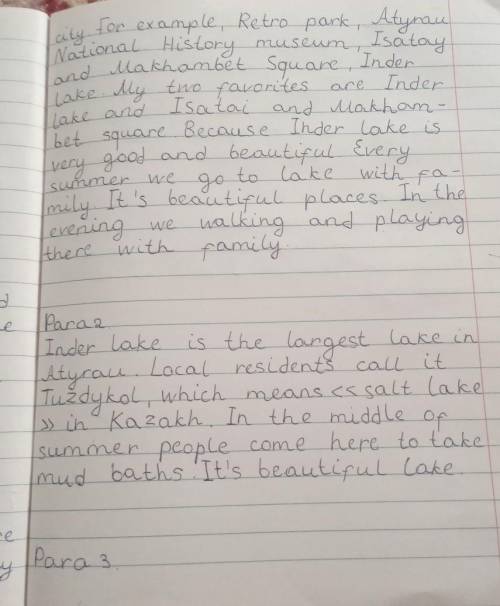 city for example, Retro park, Atyrau
National History museum, Isatay
and Makhambet Square, Inder
lake. My two favorites are Inder
lake and Isatai and Makham-
bet square Because Inder lake is
very good and beautiful Every
summer we go to lake with fa-
mily. It's beautiful places. In the
evening we walking and playing
there with family.
d
e Para 2.
Inder lake is the largest lake in
Atyrau. Local residents call it
Tuzdykol, which means <<salt lake
>> in Kazakh. In the middle of
summer people come here to take
mud baths. It's beautiful lake.
e
y Para 3.